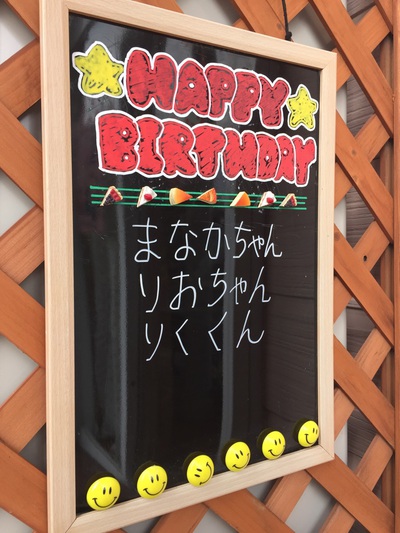 HAPPY
BIRTHDAY
まなかちゃん
りおちゃん
りくくん